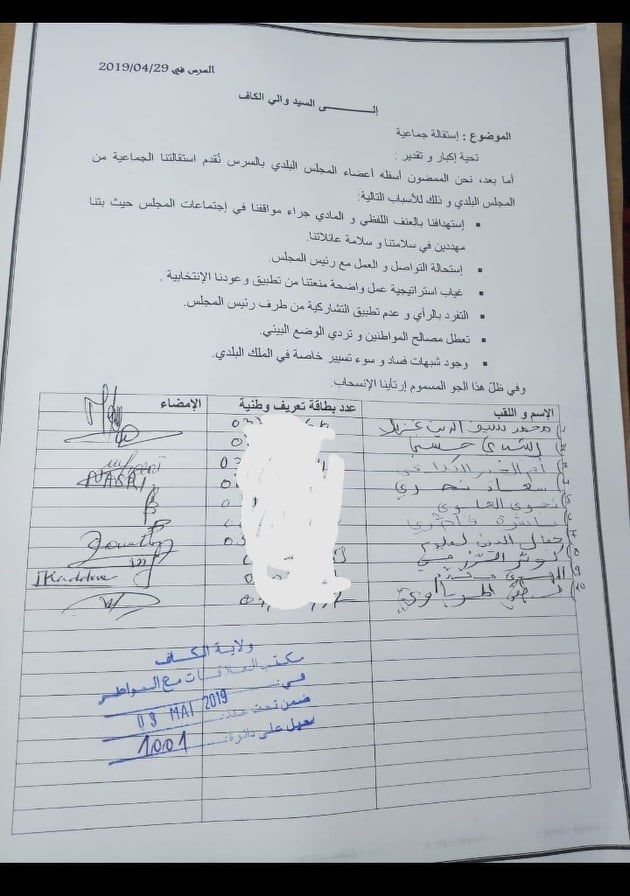 السرس في 2019/04/29
إلـــــى السيد والي الكاف
الموضوع : إستقالة جماعية
تحية إكبار و تقدير :
أما بعد، نحن الممضون أسفله أعضاء المجلس البلدي بالسرس نُقدم استقالتنا الجماعية من
المجلس البلدي و ذلك للأسباب التالية:
▪ إستهدافنا بالعنف اللفظي و المادي جراء مواقفنا في إجتماعات المجلس حيث بتنا
مهددين في سلامتنا و سلامة عائلاتنا.
▪ إستحالة التواصل و العمل مع رئيس المجلس.
▪ غياب استراتيجية عمل واضحة منعتنا من تطبيق وعودنا الإنتخابية .
▪ التفرد بالرأي و عدم تطبيق التشاركية من طرف رئيس المجلس.
▪ تعطل مصالح المواطنين و تردي الوضع البيئي.
▪ وجود شبهات فساد و سوء تسيير خاصة في الملك البلدي.
وفي ظلّ هذا الجو المسموم إرتأينا الإنسحاب.
الإسم و اللقب عدد بطاقة تعريف وطنية الإمضاء
محمد سيف الدين
سعاد نصري NASRI
نجوى العلوي
جمال الدين
كوثر
ولاية الكاف
مكتب العلاقات مع المواطن
في 03 MAI 2019
ضمن تحت عدد:
سجل على دائرة: 1001